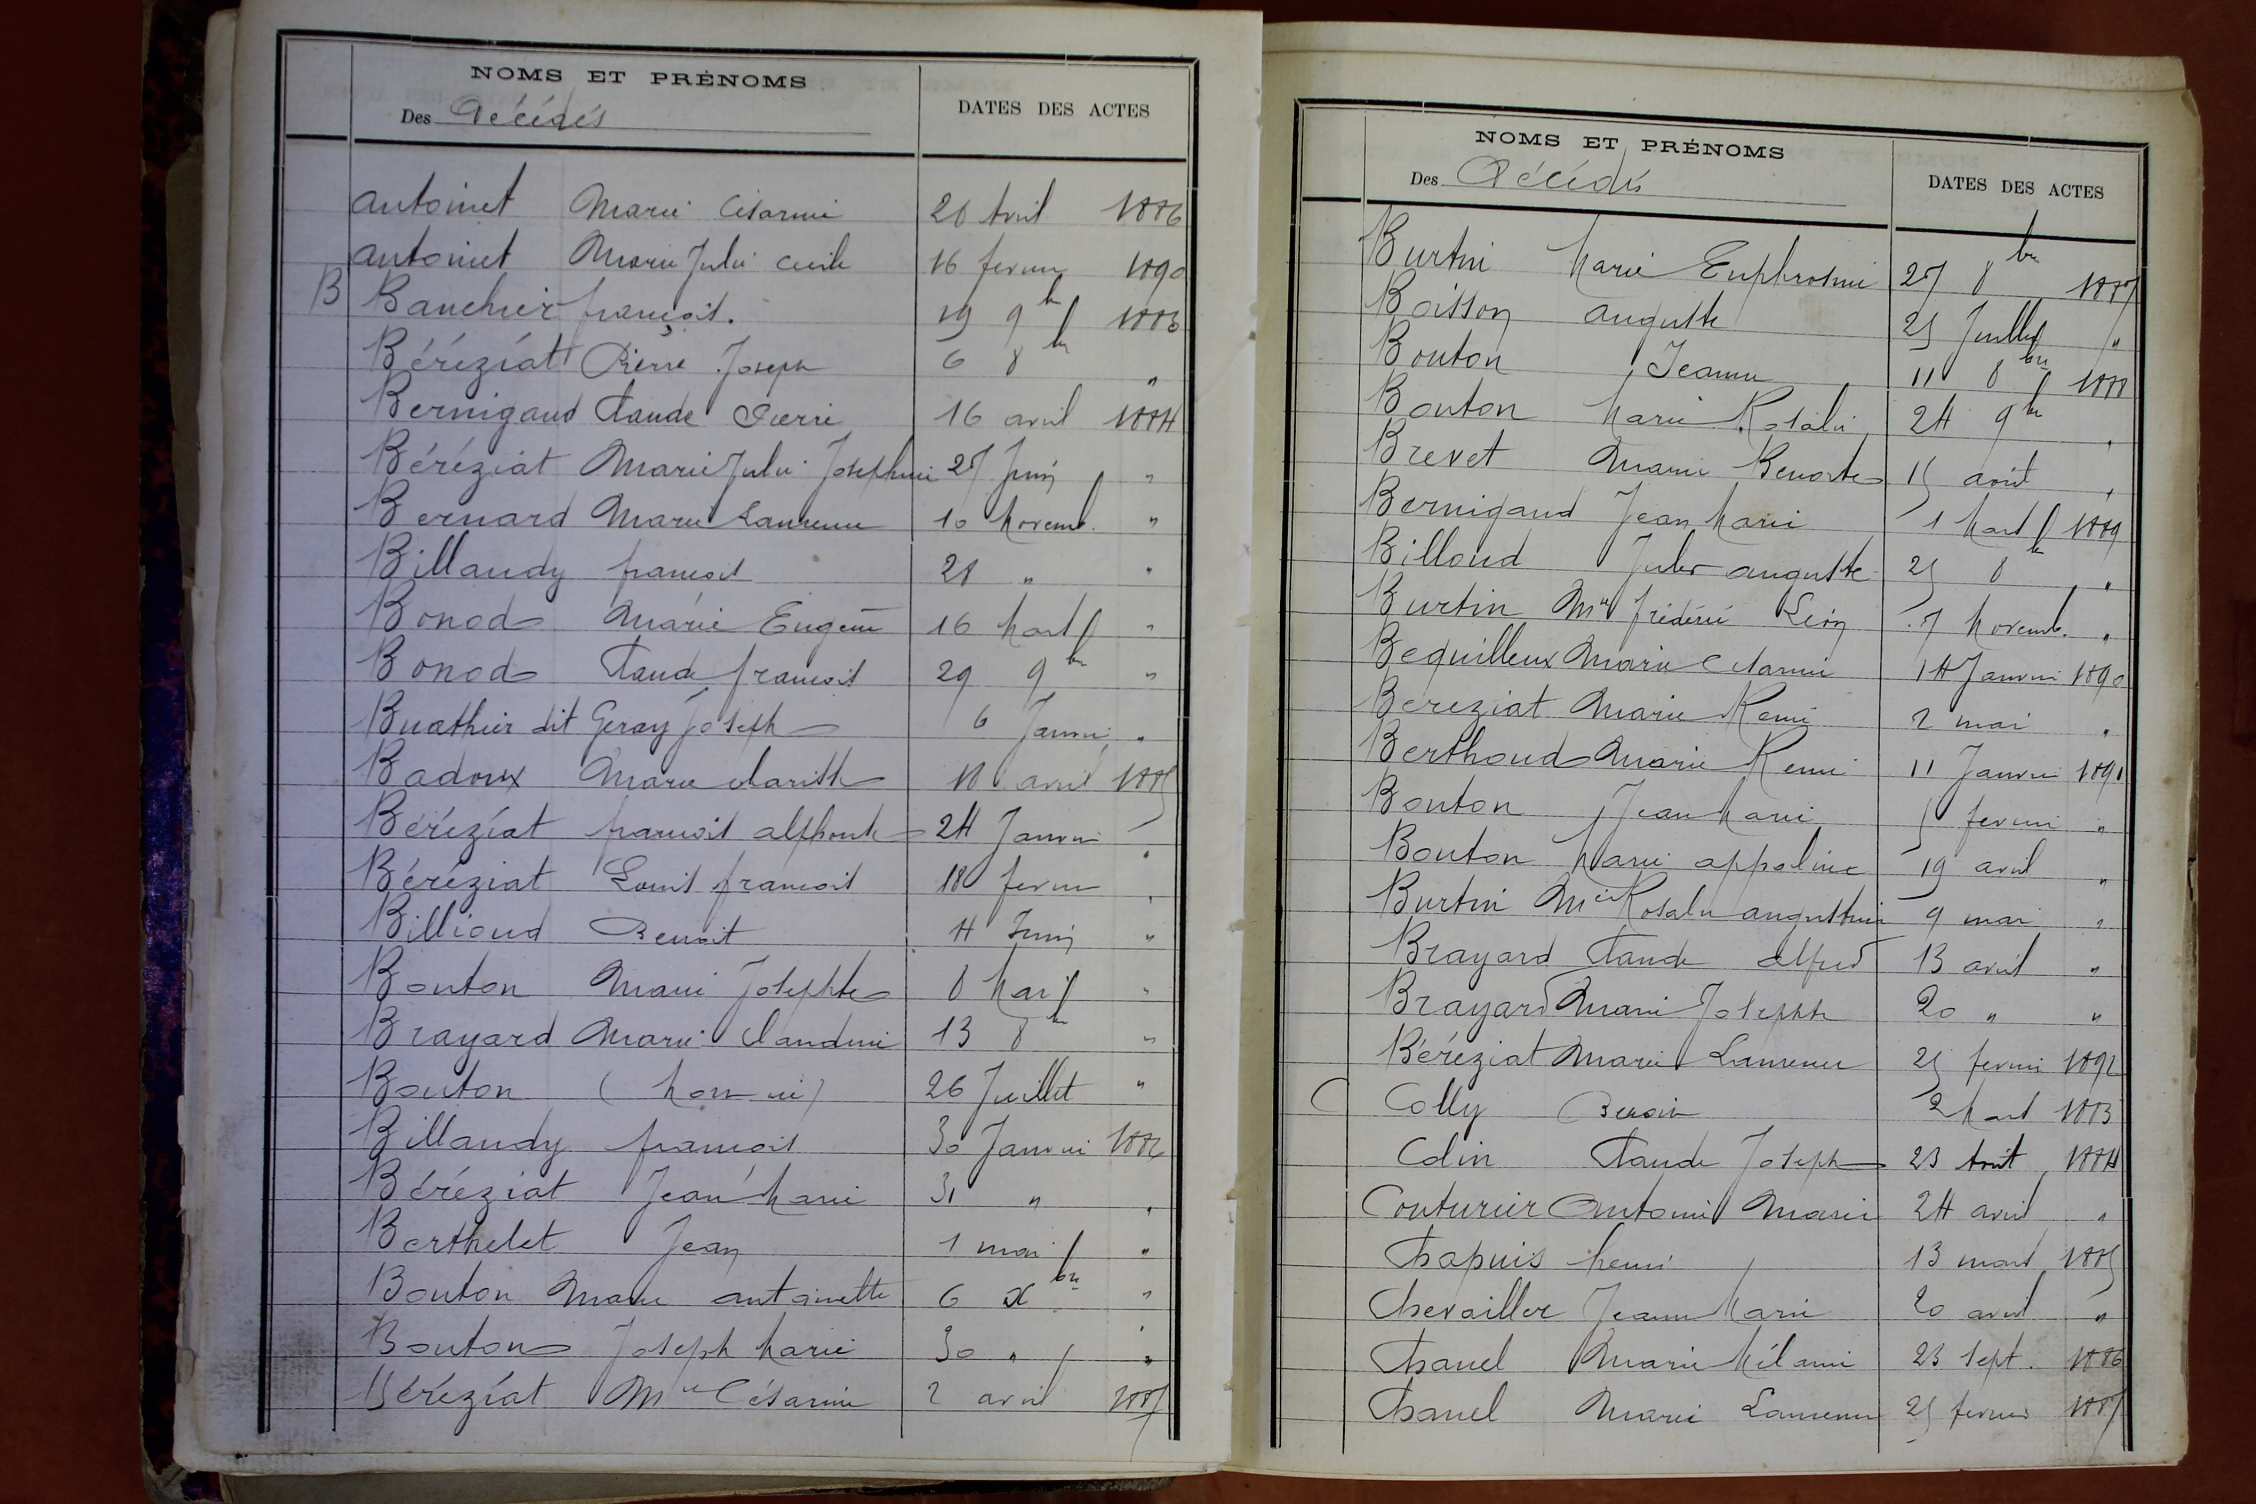 NOMS ET PRÉNOMS
Des Décédés
DATES DES ACTES
Antoinet Marie Césarine 28 Avril 1886
Antoinet Marie Julie Cécile 16 fevrier 1890
B Banchier françois. 19 9bre 1883
Béréziat Pierre Joseph 6 8bre "
Bernigaud Claude Pierre 16 avril 1884
Béréziat Marie Julie Josephine 27 Juin "
Bernard Marie Laurence 10 Novemb. "
Billaudy françois 28 " "
Bonod Marie Eugénie 16 Mars "
Bonod Claude françois 29 9bre "
Buathier dit Geray Joseph 6 Janvier "
Badoux Marie Clarisse 18 avril 1885
Béréziat françois alphonse 24 Janvier "
Béréziat Louis françois 18 fevrier "
Billioud Benoit 4 Juin "
Bouton Marie Josephte 8 Mai "
Brayard Marie Claudine 13 8bre "
Bouton (mort né) 26 Juillet "
Billaudy françois 30 Janvier 1886
Béréziat Jean Marie 31 " "
Berthelet Jean 1 mai "
Bouton Marie antoinette 6 Xbre "
Bouton Joseph Marie 30 " "
Béréziat Mie Césarine 2 avril 1887
NOMS ET PRÉNOMS
Des Décédés
DATES DES ACTES
Burtin Marie Euphrosine 27 8bre 1887
Boisson auguste 25 Juillet "
Bouton Jeanne 11 8bre 1888
Bouton Marie Rosalie 24 9bre "
Brevet Marie Benoite 15 août "
Bernigaud Jean Marie 1 Mars 1889
Billoud Jules auguste 25 8bre "
Burtin Mie frédéric Léon 7 Novemb. "
Bequilleux Marie Césarine 14 Janvier 1890
Bereziat Marie Remi 2 mai "
Berthoud Marie Remi 11 Janvier 1891
Bouton Jean Marie 5 fevrier "
Bouton Marie appoline 19 avril "
Burtin Mie Rosalie augustine 9 mai "
Brayard Claude alfred 13 avril "
Brayard Marie Josephte 20 " "
Béréziat Marie Laurence 25 fevrier 1892
C Colly Benoit 2 Mars 1883
Colin Claude Joseph 23 Août 1884
Couturier Antoine Marie 24 avril "
Chapuis henri 13 mars 1885
Chevailler Jeanne Marie 20 avril "
Chanel Marie Mélanie 23 Sept. 1886
Chanel Marie Laurence 25 fevrier 1887